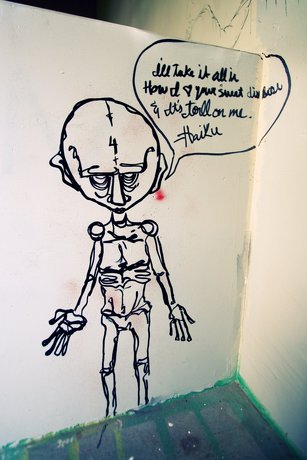 I'll take it all in
How I ♥ your sweet
& it's toll on me.
-Haiku
4